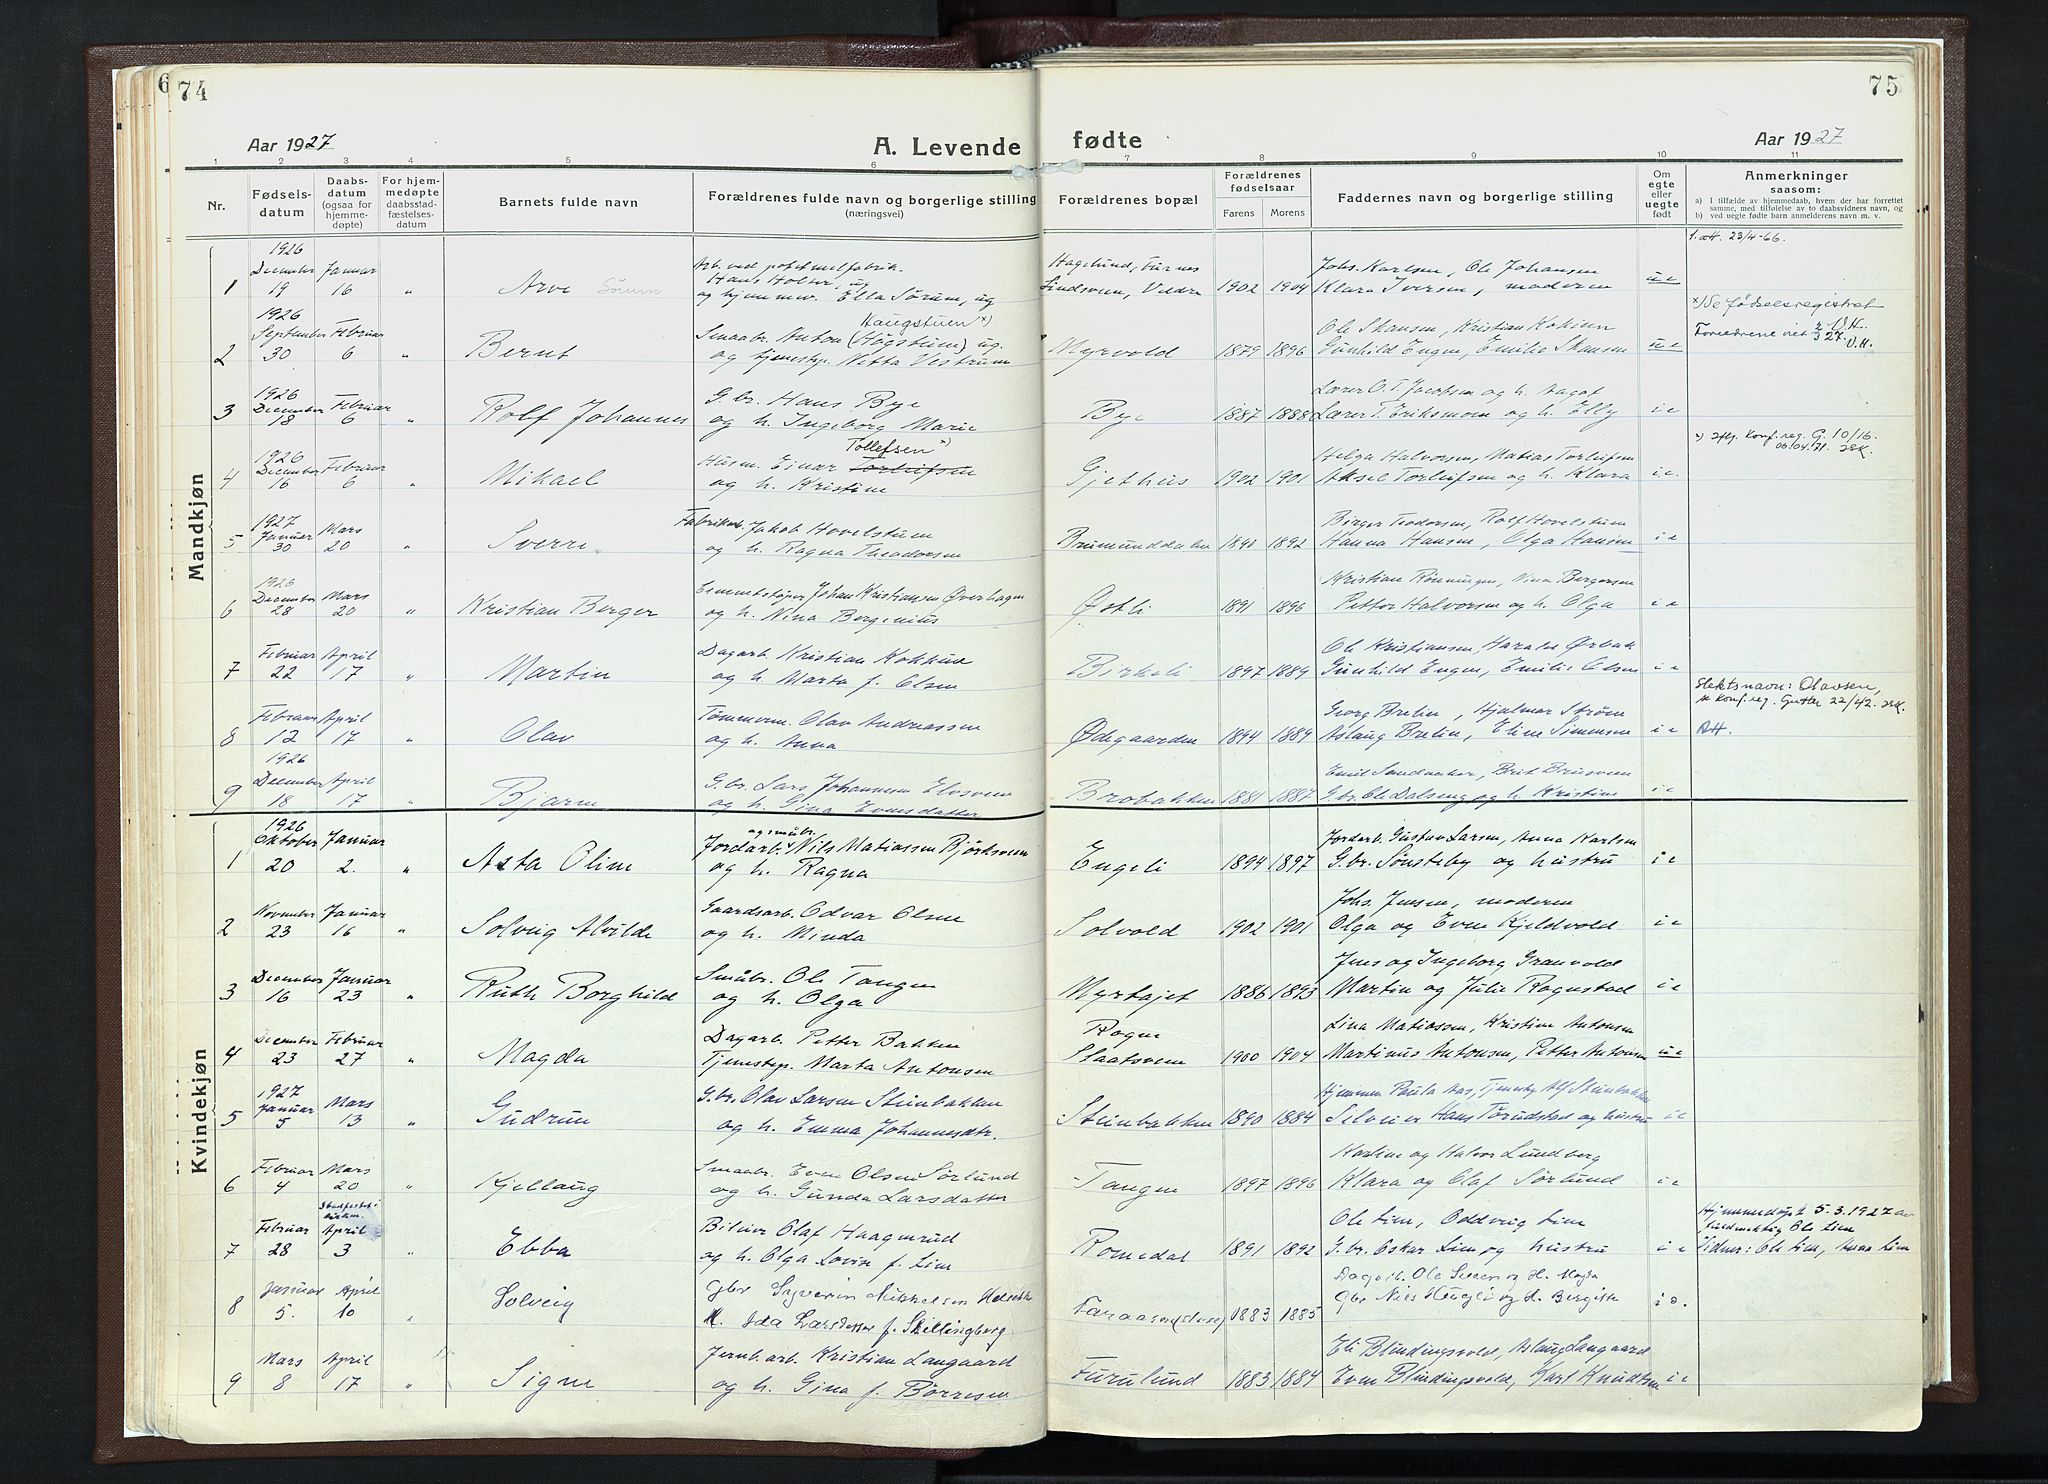 6 74
75
Aar 1927
A. Levende
fødte
Aar 1927
1 2 3 4 5 6 7 8 9 10 11
Nr.
Fødsels-
datum
Daabs-
datum
(ogsaa for
hjemme-
døpte)
For hjem-
medøpte
daabsstad-
fæstelses-
datum
Barnets fulde navn
Forældrenes fulde navn og borgerlige stilling
(næringsvei)
Forældrenes bopæl
Forældrenes
fødselsaar
Farens Morens
Faddernes navn og borgerlige stilling
Om
egte
eller
uegte
født
Anmerkninger
saasom:
a) I tilfælde av hjemmedaab, hvem der har forrettet
samme, med tilføielse av to daabsvidners navn, og
b) ved uegte fødte barn anmelderens navn m. v.
Mandkjøn
1926 1. att. 23/4-66.
December Januar Hagelund, Furnes Johs. Karlsen, Ole Johansen
Hans Holter, ug
1 19 16 " Arve Sørum og hjemmev. Ella Sørum, ug Lindsveen, Veldre 1902 1904 Klara Iversen, moderen u e
1926 Haugstuen x) x) Se fødselsregistret
September Februar Smaabr. Anton (Høgstuen) ug. Ole Skansen, Kristian Kokinn Forældrene viet 2/3 27. V.H.
2 30 6 " Bernt og tjenestep. Netta Vestrum Myrvold 1879 1896 Gunhild Engen, Emilie Skansen u e
1926
December Februar G.br. Hans Bye Lærer O.T. Jacobsen og h. Aagot
3 18 6 " Rolf Johannes og h. Ingeborg Marie Bye 1887 1888 Lærer T. Eriksmoen og h. Elly i e
1926 Tollefsen x) x) Iflg. Konf. reg. G. 10/16.
December Februar Husm. Einar Torleifsen Helga Halvorsen, Matias Torleifsen 06.04.71.
4 16 6 " Mikael og h. Kristine Gjethus 1902 1901 Aksel Torleifsen og h. Klara i e.
1927
Januar Mars Fabrikarb. Jakob Hovelstuen Birger Teodorsen, Rolf Hovelstuen
5 30 20 " Sverre og h. Ragna Theodorsen Brumunddalen 1892 Hanna Hansen, Olga Hansen i e
1926
December Mars Cementstøper Johan Kristiansen Øverhagen Kristian Rønningen, Nina Bergersen
6 28 20 " Kristian Berger og h. Nina Bergenius Østli 1891 1896 Petter Halvorsen og h. Olga i e
Februar April Dagarb. Kristian Kokkinn Ole Kristiansen, Harald Ørbæk
7 22 17 " Martin og h. Marta f. Olsen Birkeli 1897 1889 Gunhild Engen, Emilie Olsen i e
Slektsnavn: Olavsen,
Februar April Tømmerm. Olav Andreassen Georg Brelin, Hjalmar Strøm se Konf. reg. Gutter 22/42.
8 12 17 " Olav og h. Anna Ødegaarden 1894 1889 Aslaug Brelin, Eline Simensen i e
1926
December April G.br. Lars Johannesen Elvsveen Emil Sandaaker, Brit Brusveen
9 18 17 " Bjarne og h. Gina Evensdatter Brobakken 1881 1887 G.br. Ole Dalseng og h. Kristine i e
Kvindekjøn
1926 og småbr.
Oktober Januar Jordarb. Nils Matiassen Bjørksveen Jordarb. Gustav Larsen, Anna Karlsen
1 20 2. " Asta Oline og h. Ragna Engeli 1894 1897 G.br. Sønsteby og hustru i e
November Januar Gaardsarb. Odvar Olsen Johs. Jensen, moderen
2 23 16 " Solveig Alvilde og h. Minda Solvold 1902 1901 Olga og Even Kjeldvold i e
December Januar Småbr. Ole Tangen Jens og Ingeborg Granvold
3 16 23 " Ruth Borghild og h. Olga Myrhaget 1886 1893 Martin og Julie Rognstad i e
December Februar Dagarb. Petter Bakken Rogne Lina Matiassen, Kristine Antonsen
4 23 27 " Magda Tjenestep. Marta Antonsen Staatsveen 1900 1904 Martinus Antonsen, Petter Antonsen u e
1927
Januar Mars G.br. Olav Larsen Steinbakken Hjemmev. Paula Aas, Tjenestg. Alf Steinbakken
5 5 13 " Gudrun og h. Emma Johannesdtr. Steinbakken 1890 1884 Hans Torudstad og hustru i e
Februar Mars Smaabr. Even Olsen Sørlund Martine og Halvor Lundberg
6 4 20 " Kjellaug og h. Gunda Larsdatter Tangen 1897 1896 Klara og Olaf Sørlund i e
Stadfestet i
kirken. Hjemmedøpt 5.3.1927 av
Februar April Bileier Olaf Haagenrud Ole Lien, Oddveig Lien Ole Lien
7 28 3 " Ebba og h. Olga Lovise f. Lien Romedal 1891 1892 G.br. Oskar Lien og hustru i e Vidner: Ole Lien, Anna Lien
Januar April Gbr Syverin Mikkelsen Dagarb. Ole Seversen og H. Magda
8 5. 10 " Solveig H. Ida Larsdatter f. Skillingberg 1883 1885 Gbr Nils Hugli og H. Bergitte i e.
Mars April Jernb.arb. Kristian Langaard Eli Blindingsvold, Aslaug Langaard
9 8 17 " Signe og h. Gina f. Børresen Furulund 1883 1884 Even Blindingsvold, Karl Knudtsen i e